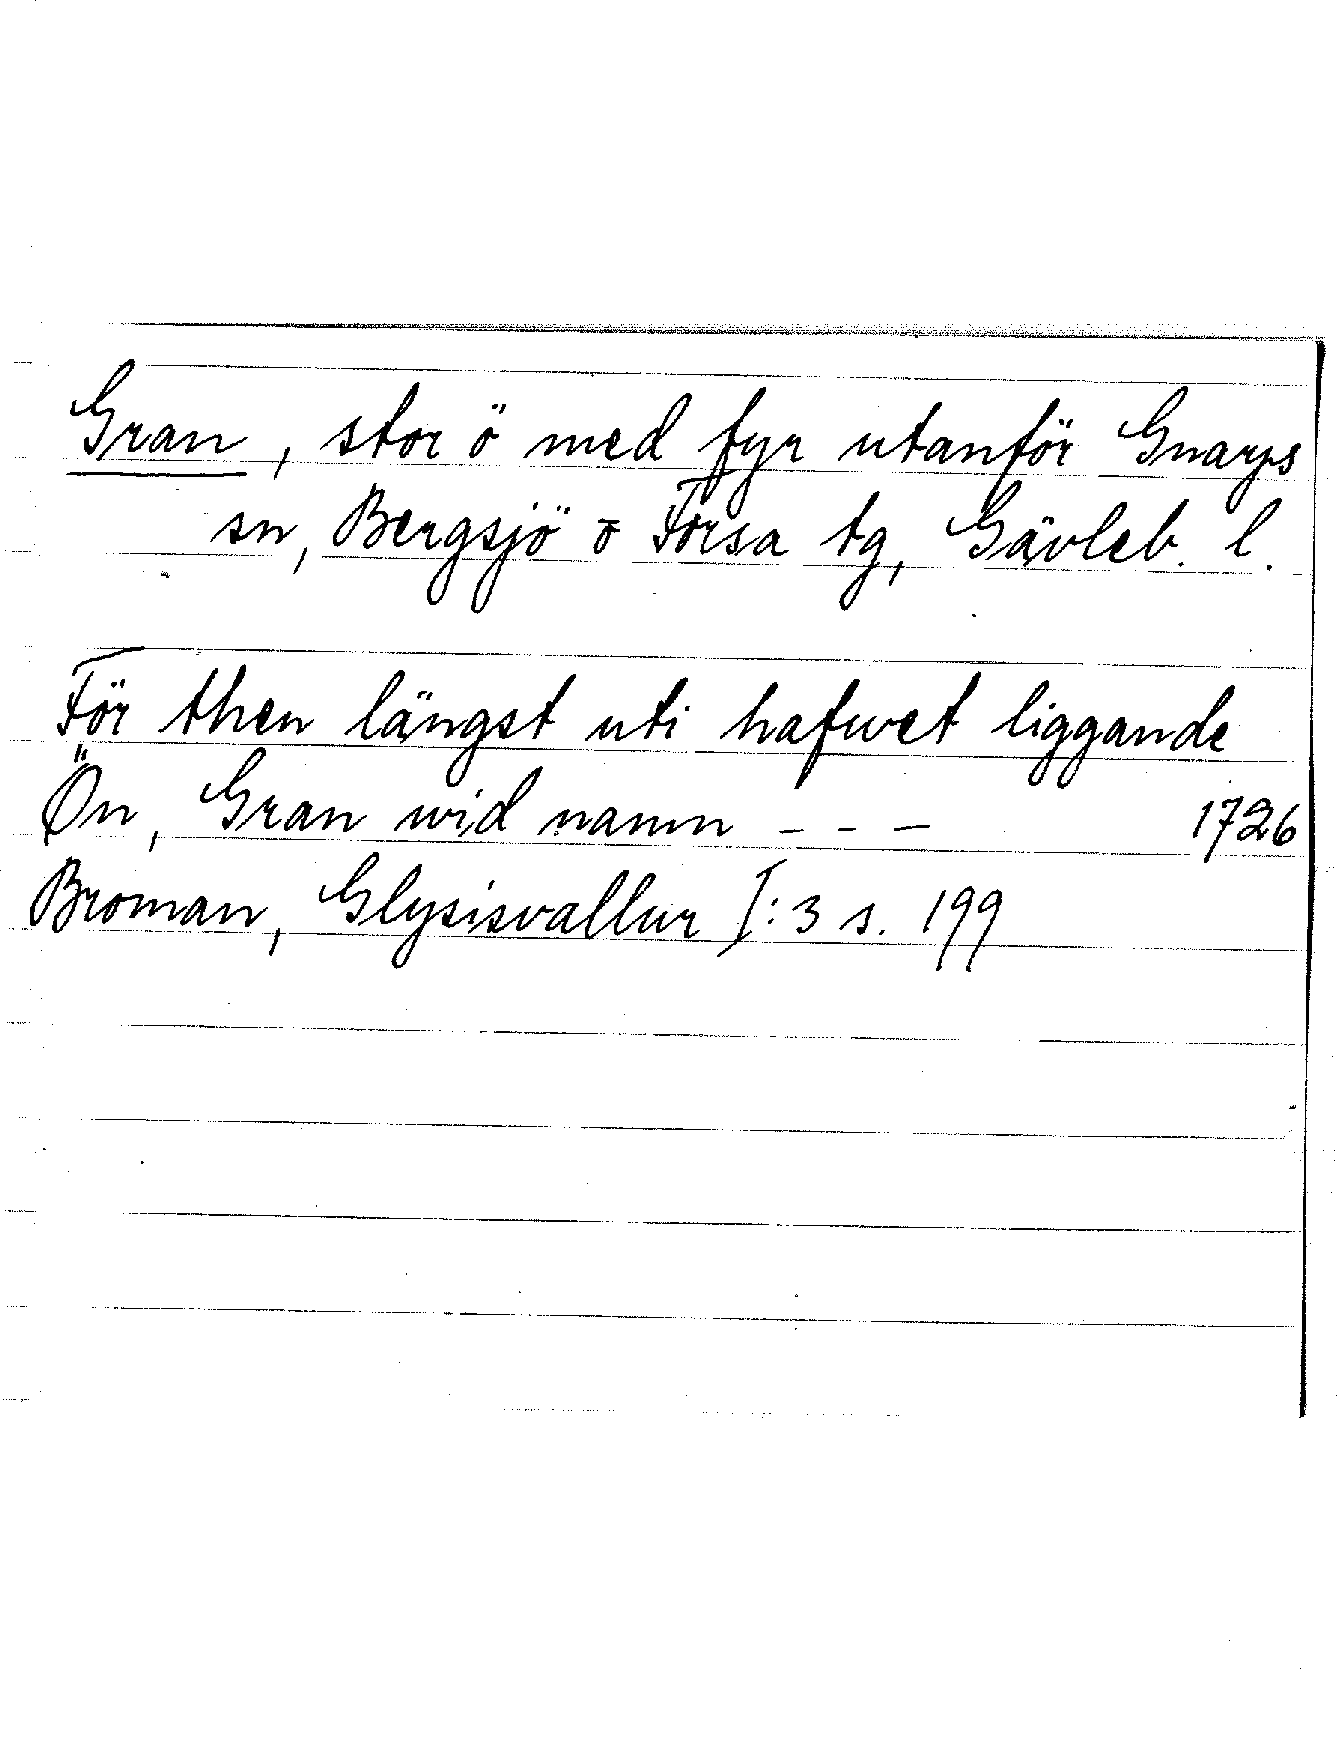 Gran, stor ö med fyr utanför Gnarps
sn, Bergsjö o Forsa tg, Gävleb. l.
För then längst uti hafwet liggande
Ön, Gran wid namn - - - 1726
Broman, Glysisvallur I:3 s. 199